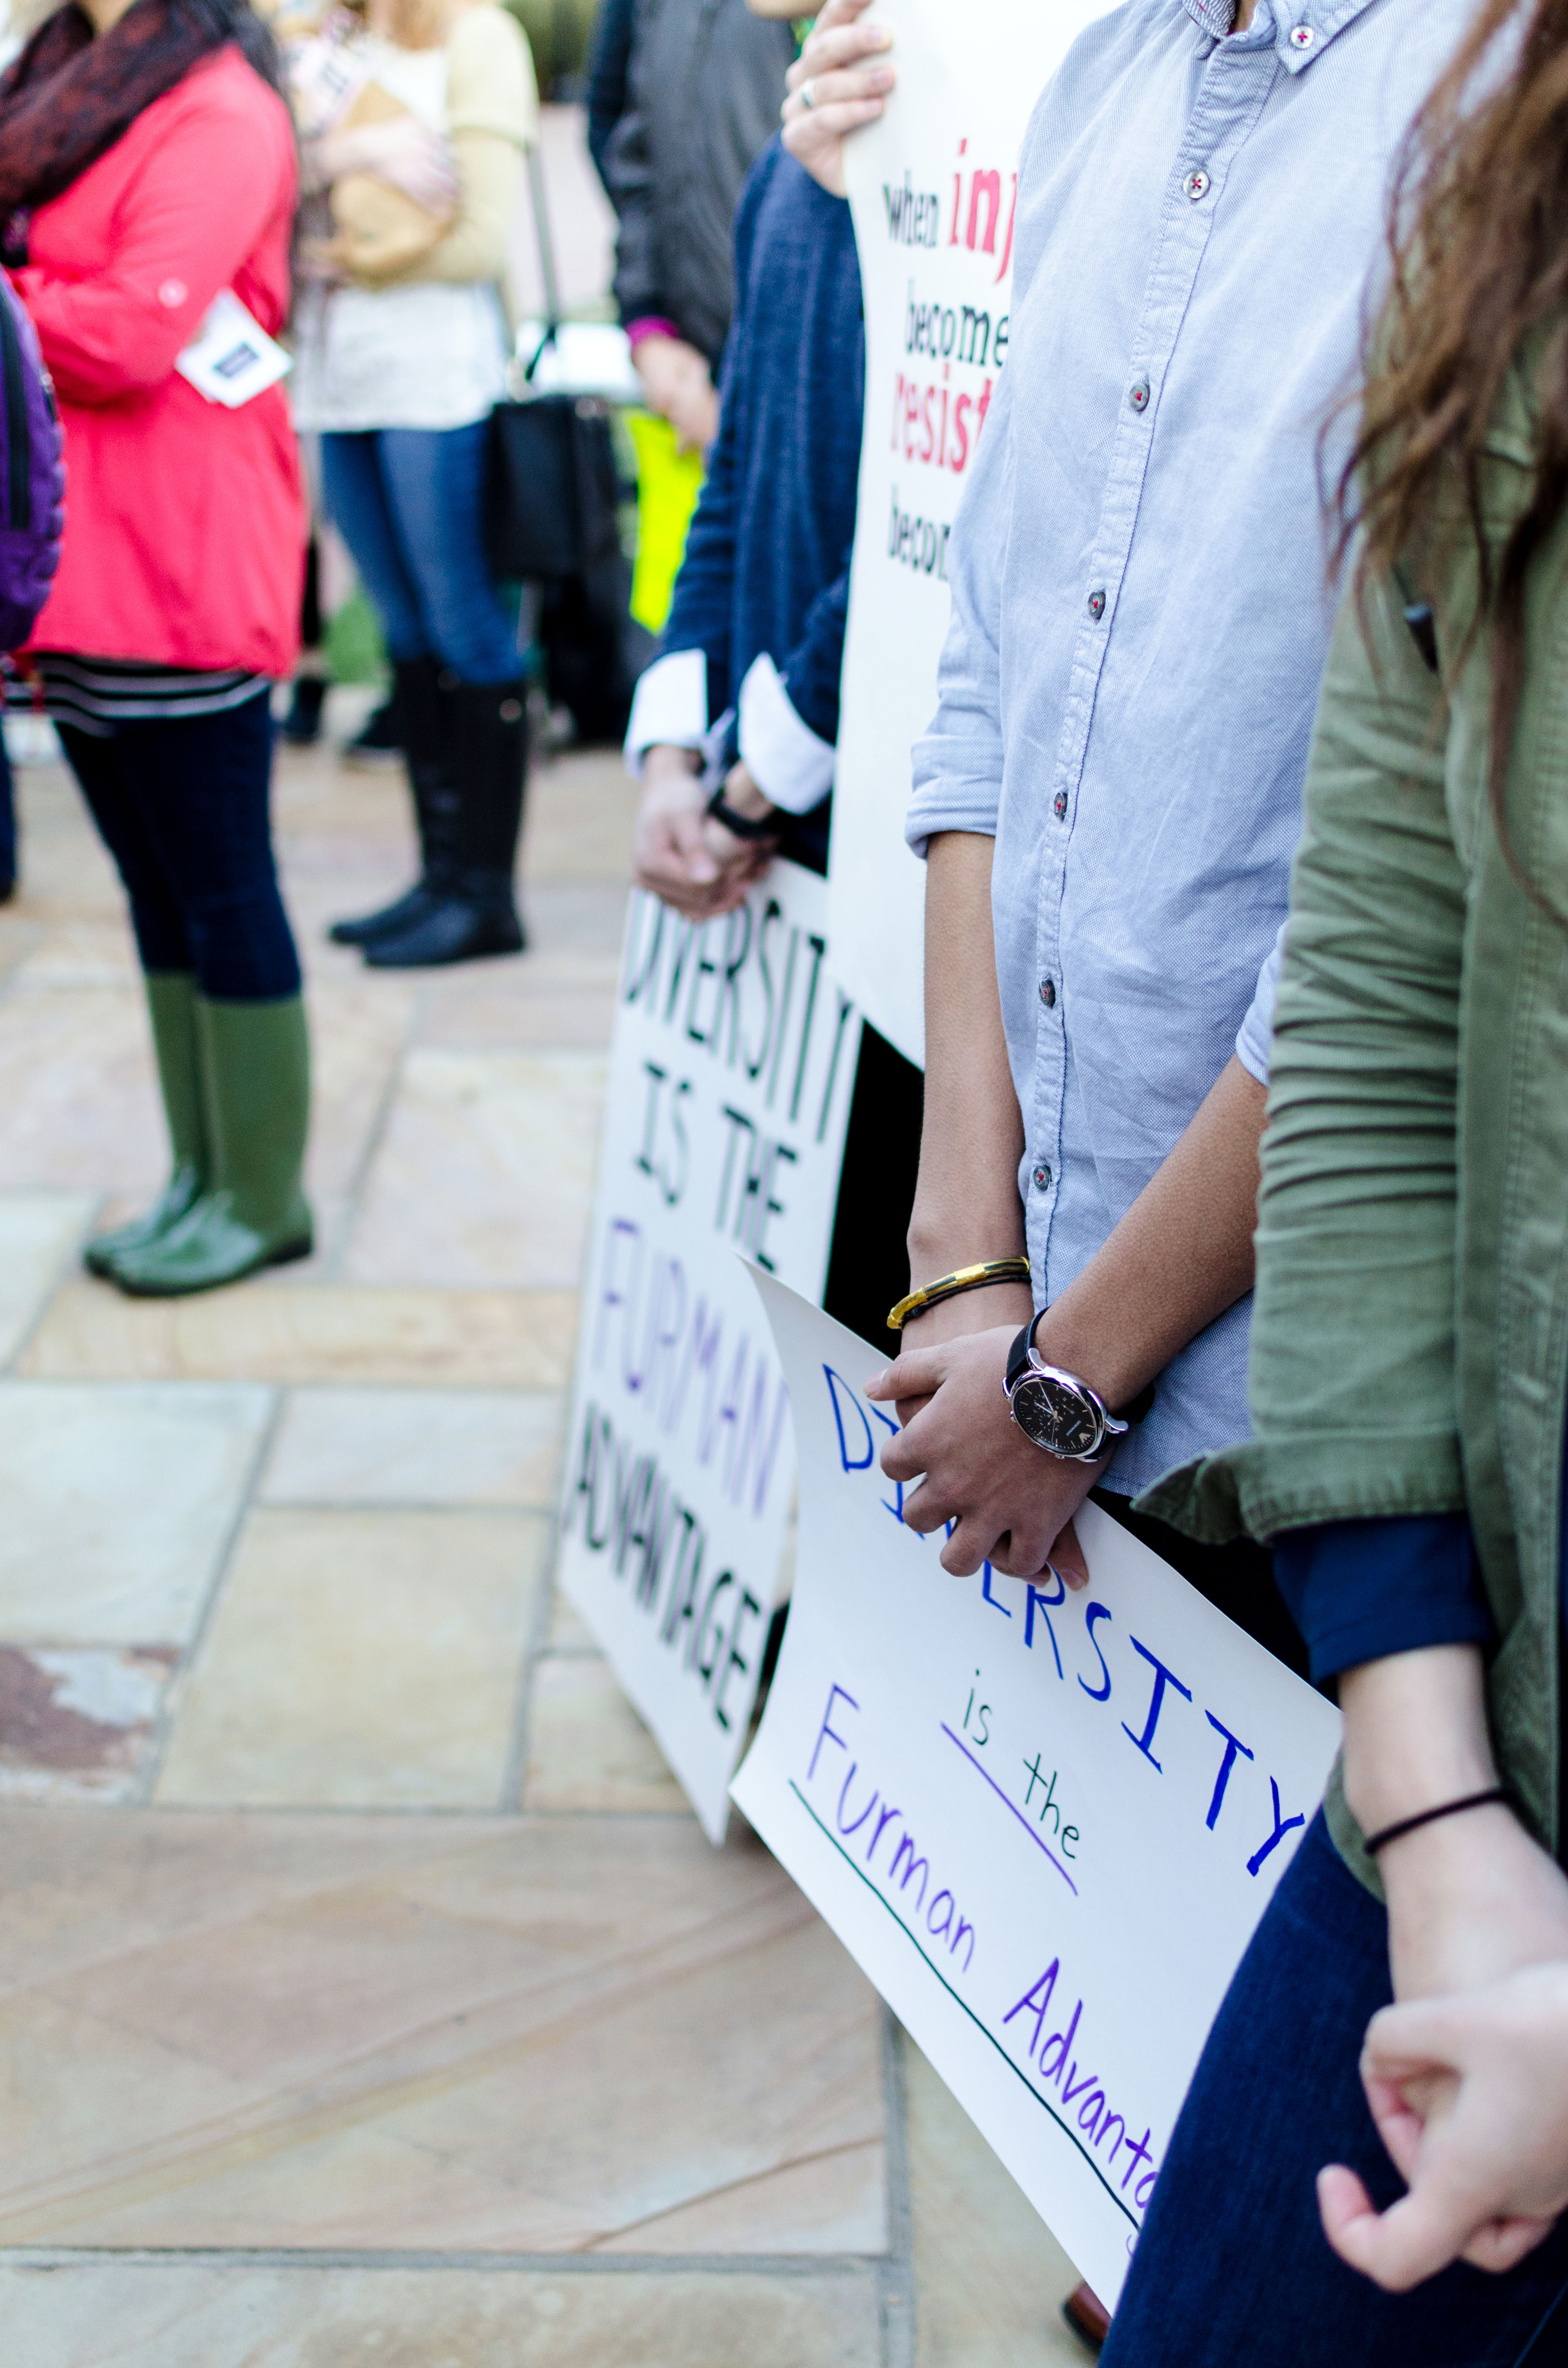 when inj
become
resist
becom
DIVERSITY
IS THE
FURMAN
ADVANTAGE
DIVERSITY
is the
Furman Advantag